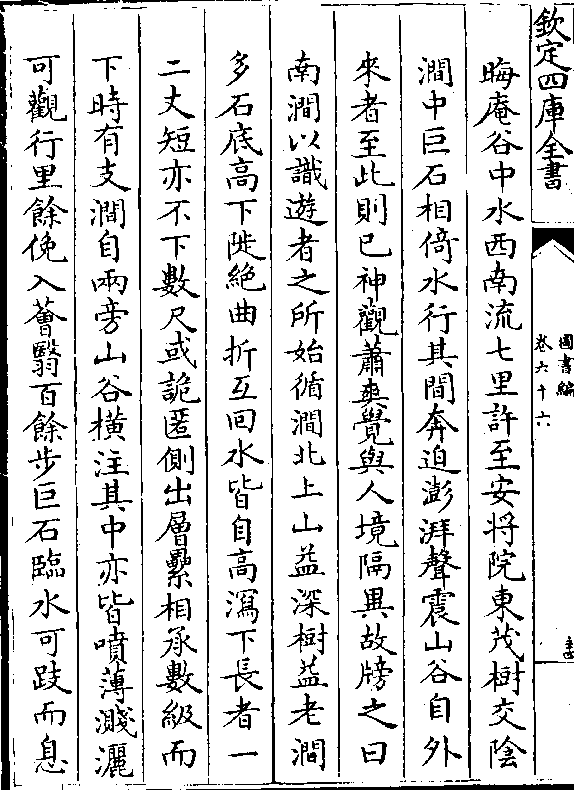 欽定四庫全書
圖書編
卷六十六
晦庵谷中水西南流七里許至安将院東茂樹交陰
澗中巨石相倚水行其間奔迫澎湃聲震山谷自外
來者至此則已神觀蕭爽覺與人境隔異故牓之曰
南澗以識遊者之所始循澗北上山益深樹益老澗
多石底高下陡絶曲折互回水皆自高瀉下長者一
二丈短亦不下數尺或詭匿側出層纍相承數級而
下時有支澗自兩旁山谷横注其中亦皆噴薄濺灑
可觀行里餘俛入薈翳百餘步巨石臨水可跂而息